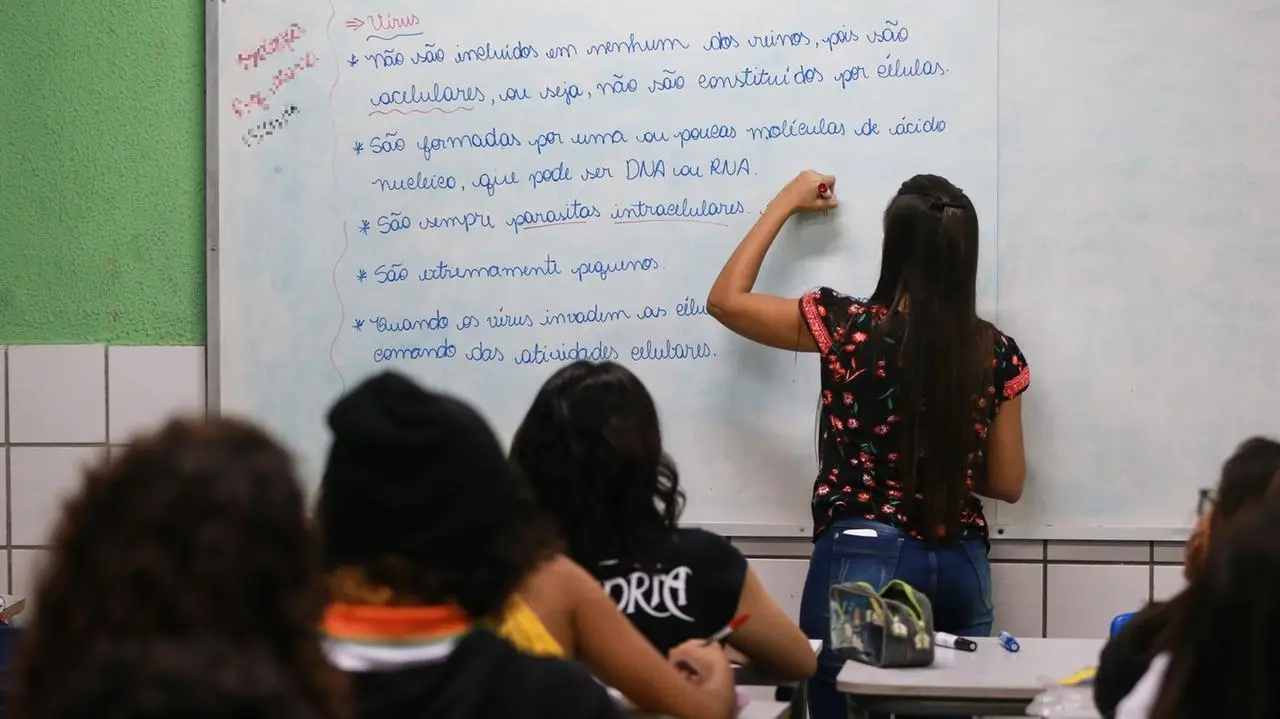 ⇒ Vírus
* não são incluídos em nenhum dos reinos, pois são
acelulares, ou seja, não são constituídos por células.
* São formadas por uma ou poucas moléculas de ácido
nucleico, que pode ser DNA ou RNA.
* São sempre parasitas intracelulares.
* São extremamente pequenos.
* Quando os vírus invadem as célu
comando das atividades celulares.